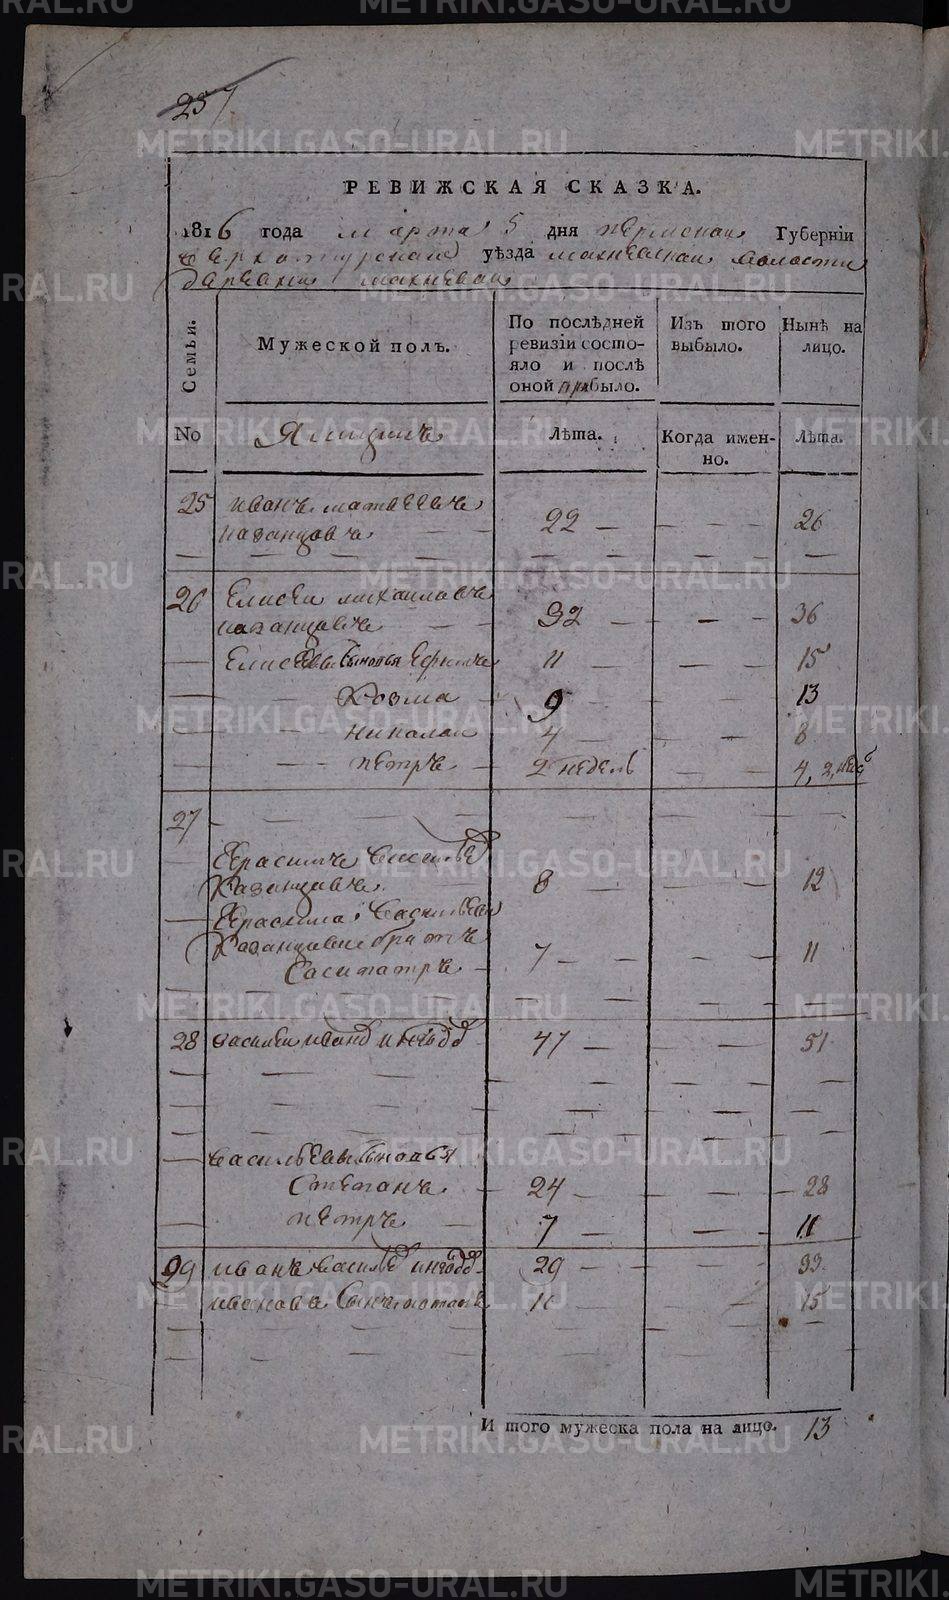 257
РЕВИЖСКАЯ СКАЗКА.
1816 года марта 5 дня пермской Губерніи
верхотурскаго уѣзда махневской волости
деревни махневой
Семьи.
Мужеской полъ.
По послѣдней ревизіи состояло и послѣ оной прибыло.
Изъ того выбыло.
Нынѣ на лицо.
No
Ямщикъ
Лѣта.
Когда именно.
Лѣта.
25 иванъ матвеевъ
казанцовъ 22 — — — 26
26 Елисеи михаиловъ
казанцовъ 32 — — — 36
Елисеевы сыновья Ефимъ 11 — — 15
Козма 9 13
николаи 4 — — 8
петръ 2 недель — — 4, 2, нед
27
Герасимъ васильев
Казанцовъ 8 — — 12
Герасима васильева
Казанцова братъ 7 — — 11
Сосипатръ
28 василеи иванов 47 — — 51
васильевы сыновья
Степанъ 24 — — 28
петръ 7 — — 11
29 иванъ васильев 29 — — 33
иванова сынъ потапъ 11 15
И того мужеска пола на лицо. 13
METRIKI.GASO-URAL.RU